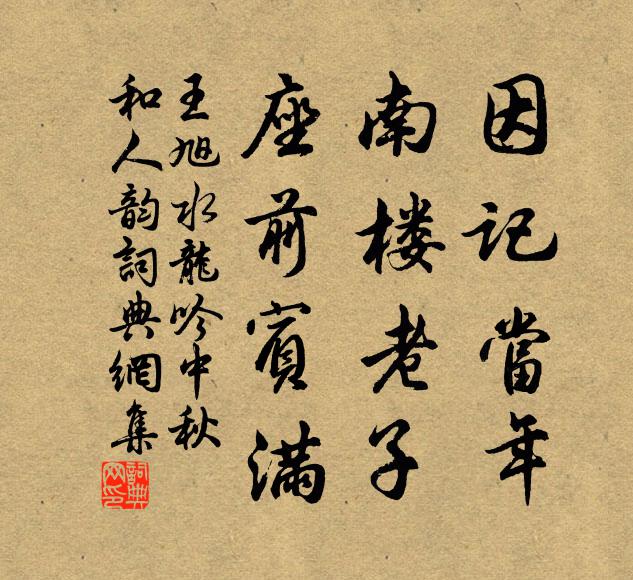 因记當年
南楼老子
座前賓滿
王旭水龍吟中秋
和人韵詞典網集
詞典网印